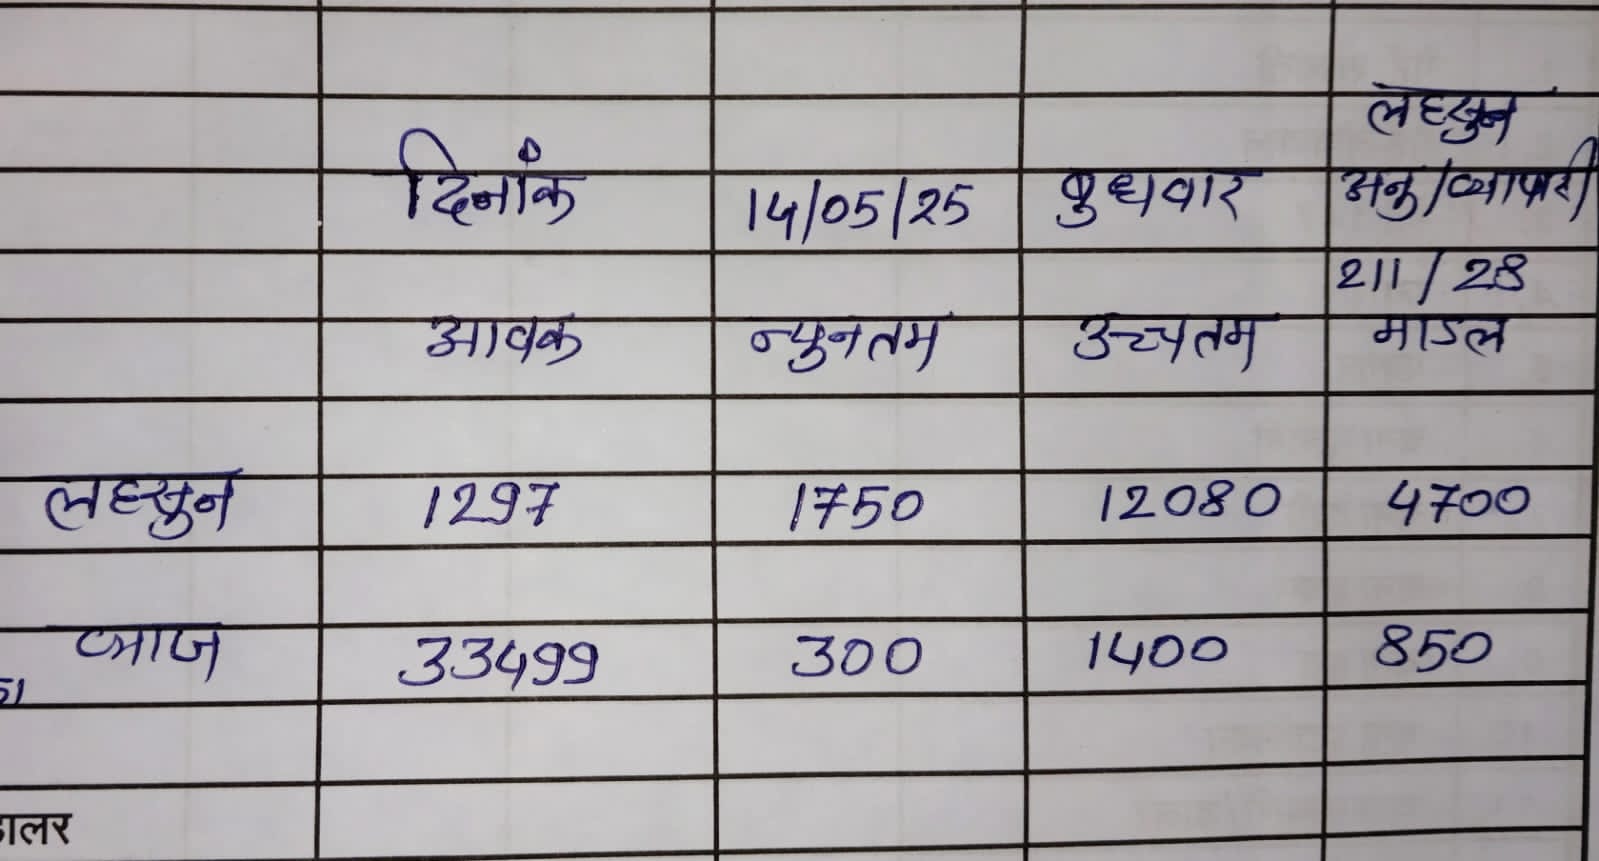 लहसुन
दिनांक 14/05/25 बुधवार अनु/व्यापारी
211/28
आवक न्युनतम उच्चतम माडल
लहसुन 1297 1750 12080 4700
प्याज 33499 300 1400 850
डालर